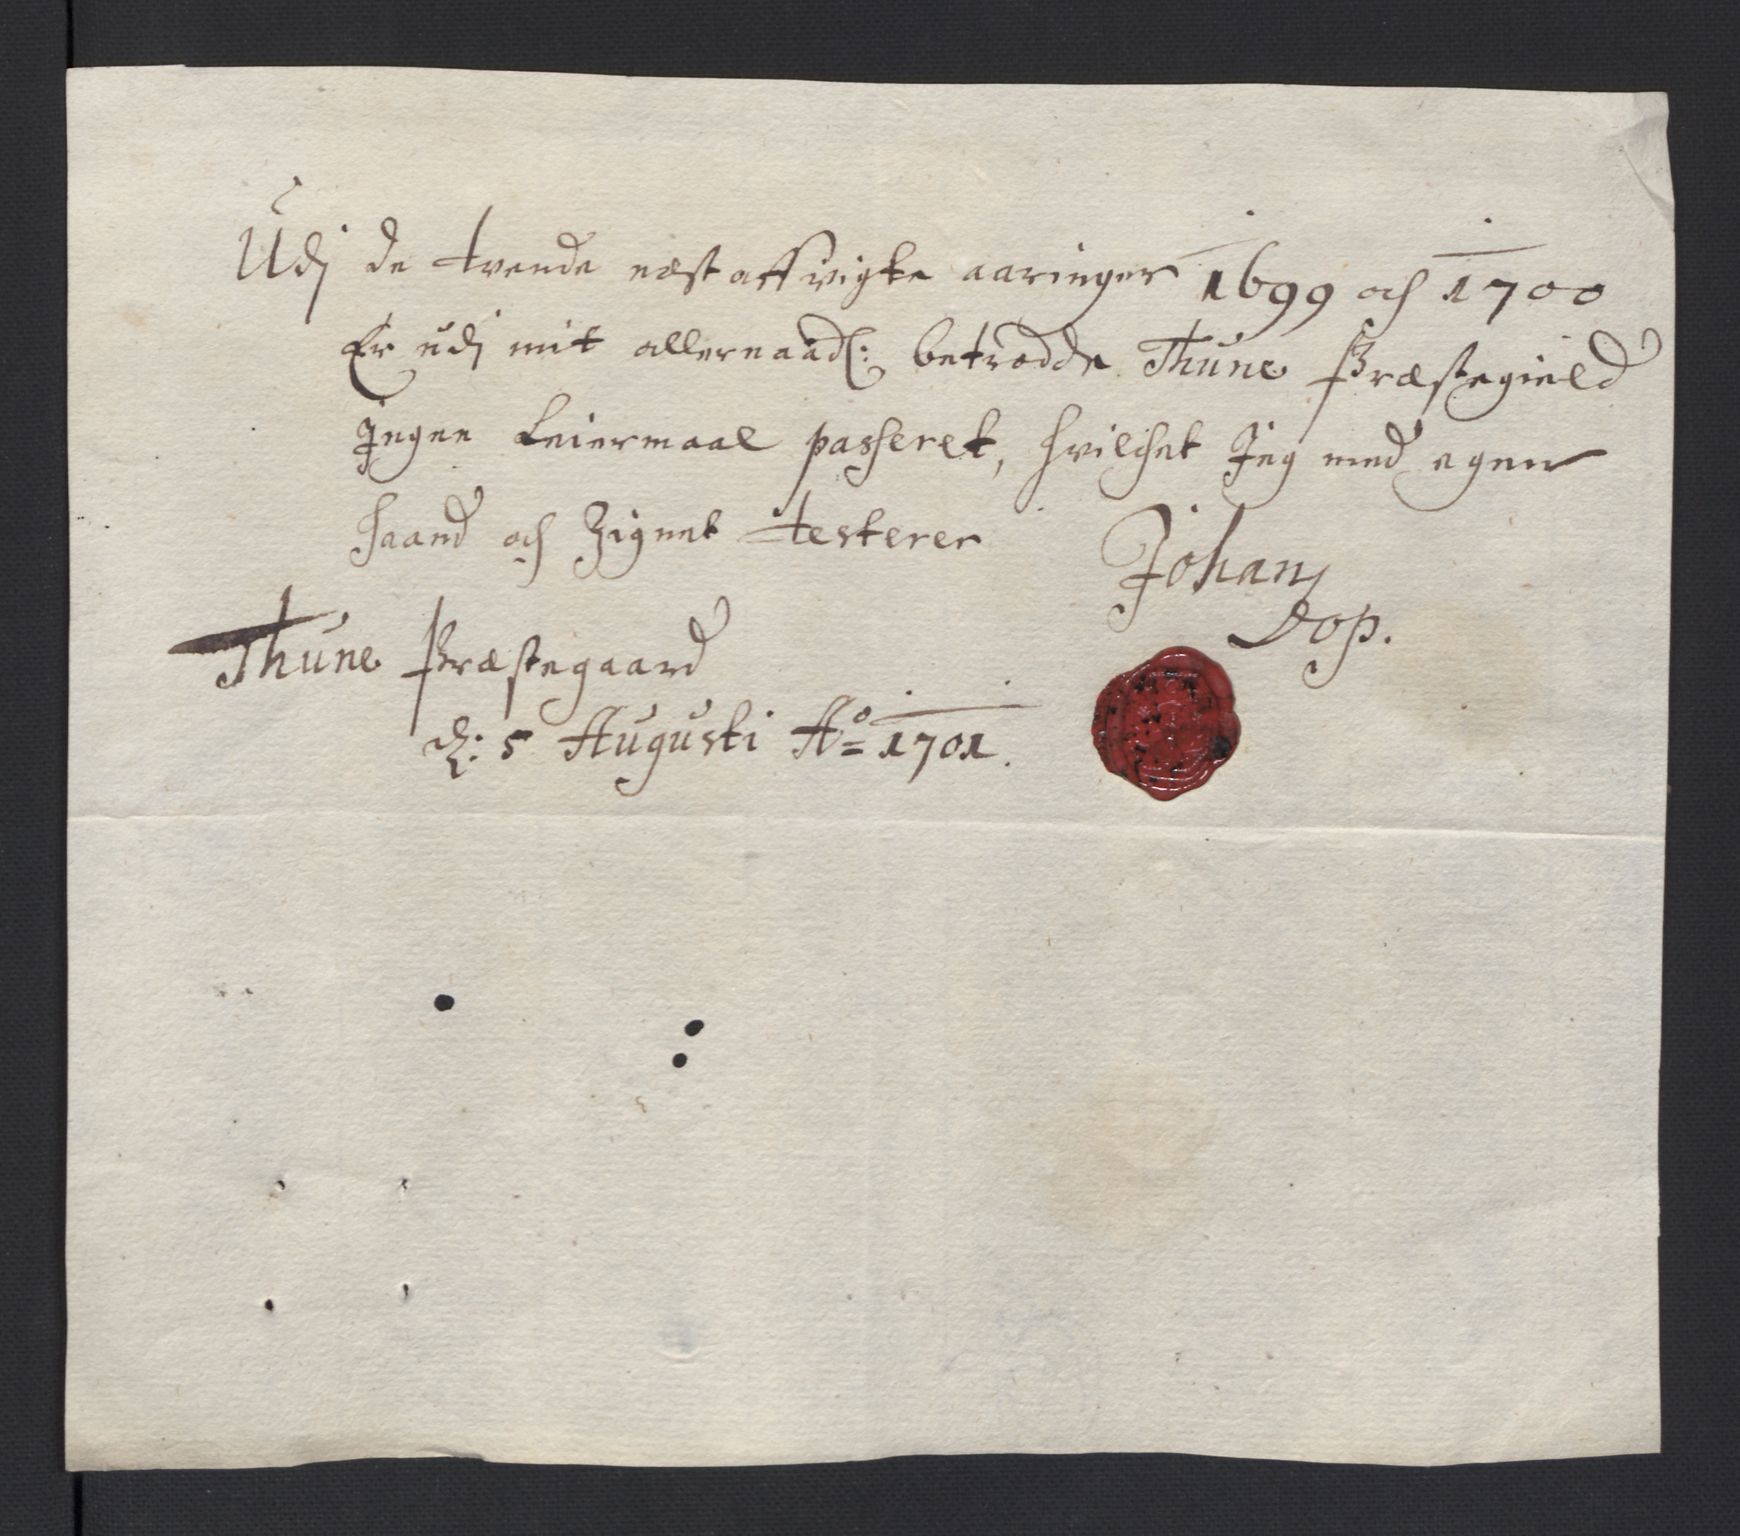 Udj de tvende næst affvigte aaringer 1699 och 1700
Er udj mit allernaadl: betrodde Thune Præstegield
Ingen Leiermaal passeret, hvilchet Jeg med egen
haand och Zignet testerer
Johan
Dop.
Thune Præstegaard
d: 5 Augusti Ao= 1701.